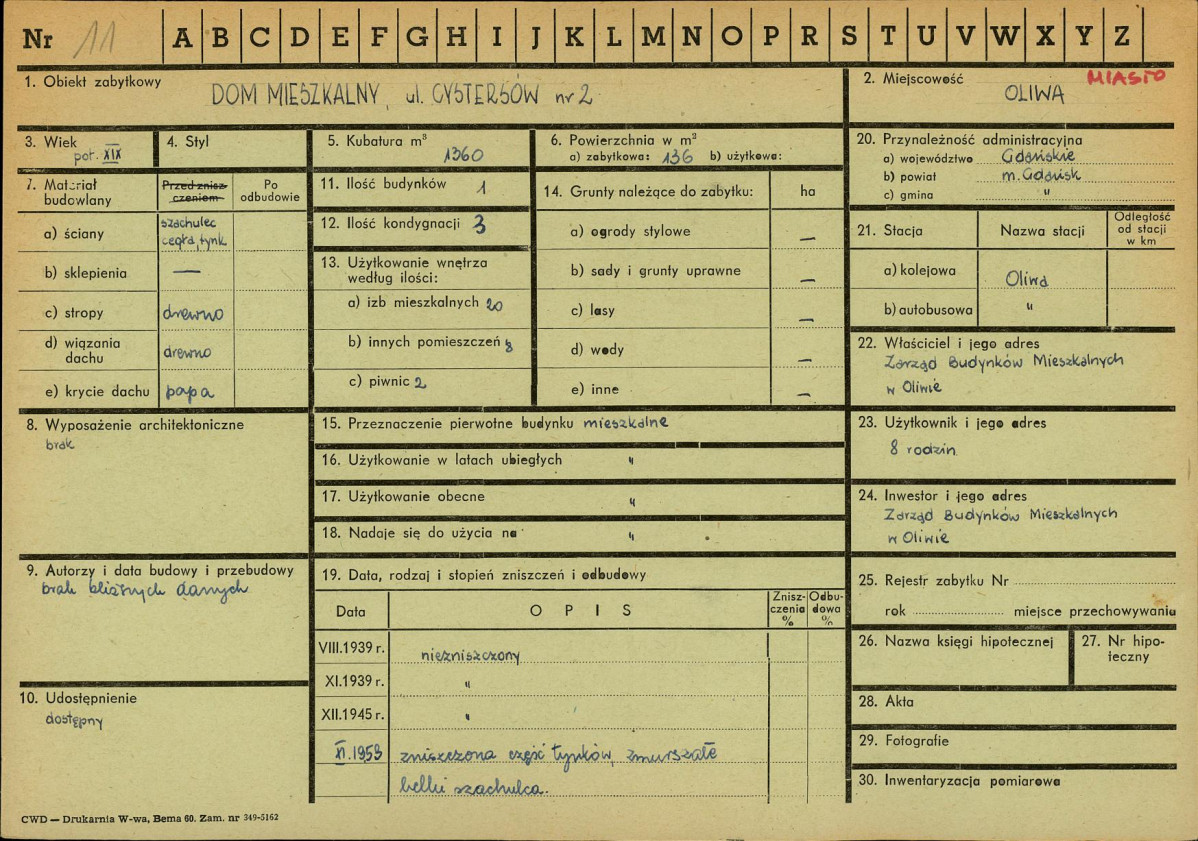 Nr 11 A B C D E F G H I J K L M N O P R S T U V W X Y Z
1. Obiekt zabytkowy
DOM MIESZKALNY, ul. CYSTERSÓW nr 2
2. Miejscowość MIASTO
OLIWA
3. Wiek
poł. XIX
4. Styl
5. Kubatura m³
1360
6. Powierzchnia w m²
a) zabytkowa: 136 b) użytkowa:
7. Materiał budowlany
Przed zniszczeniem
Po odbudowie
a) ściany
szachulec
cegła, tynk
b) sklepienia —
c) stropy drewno
d) wiązania dachu drewno
e) krycie dachu papa
8. Wyposażenie architektoniczne
brak
9. Autorzy i data budowy i przebudowy
brak bliższych danych
10. Udostępnienie
dostępny
11. Ilość budynków 1
12. Ilość kondygnacji 3
13. Użytkowanie wnętrza
według ilości:
a) izb mieszkalnych 20
b) innych pomieszczeń 8
c) piwnic 2
14. Grunty należące do zabytku: ha
a) ogrody stylowe —
b) sady i grunty uprawne —
c) lasy —
d) wody —
e) inne —
15. Przeznaczenie pierwotne budynku mieszkalne
16. Użytkowanie w latach ubiegłych "
17. Użytkowanie obecne "
18. Nadaje się do użycia na "
19. Data, rodzaj i stopień zniszczeń i odbudowy
Data OPIS Zniszczenia % Odbudowa %
VIII.1939 r. niezniszczony
XI.1939 r. "
XII.1945 r. "
XI.1959 zniszczona część tynków, zmurszałe
belki szachulca.
20. Przynależność administracyjna
a) województwo Gdańskie
b) powiat m. Gdańsk
c) gmina "
21. Stacja Nazwa stacji Odległość od stacji w km
a) kolejowa Oliwa
b) autobusowa "
22. Właściciel i jego adres
Zarząd Budynków Mieszkalnych
w Oliwie
23. Użytkownik i jego adres
8 rodzin
24. Inwestor i jego adres
Zarząd Budynków Mieszkalnych
w Oliwie
25. Rejestr zabytku Nr
rok miejsce przechowywania
26. Nazwa księgi hipotecznej
27. Nr hipoteczny
28. Akta
29. Fotografie
30. Inwentaryzacja pomiarowa
CWD — Drukarnia W-wa, Bema 60. Zam. nr 349-5162